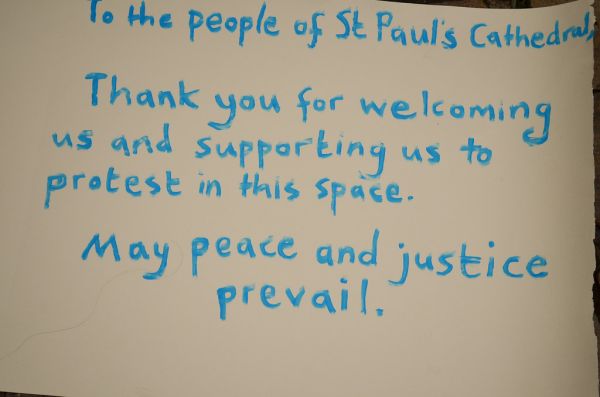 To the people of St Paul's Cathedral,
Thank you for welcoming
us and supporting us to
protest in this space.
May peace and justice
prevail.